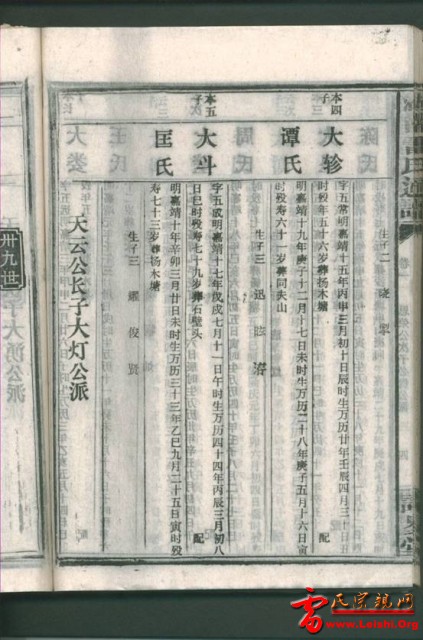 生子二
本四子
大轸
字五常明嘉靖十五年丙申三月初十日辰时生万历廿年壬辰四月三十日
时殁年五十六岁葬扬木塘 配
谭氏
明嘉靖十九年庚子十二月十七日未时生万历二十八年庚子五月十六日寅
时殁寿六十一岁葬同夫山
生子三 迅
本五子
大斗
字五成明嘉靖十七年戊戌七月十一日午时生万历四十四年丙辰三月初八
日巳时殁寿七十九岁葬石壁头 配
匡氏
明嘉靖十年辛卯三月廿日未时生万历三十三年乙巳九月二十五日寅时殁
寿七十三岁葬扬木塘
生子三 耀 俊 贤
天云公长子大灯公派
卅九世
雷氏宗亲网
www.Leishi.Org